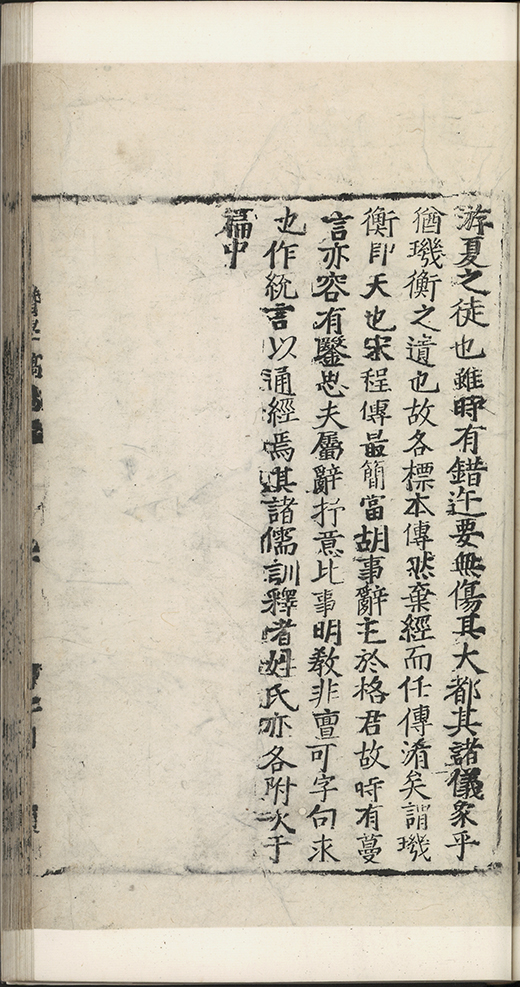 游夏之徒也雖時有錯迕要無傷其大都其諸儀象乎
猶璣衡之遺也故各標本傳然棄經而任傳淆矣謂璣
衡即天也宋程傳最簡當胡事辭主於格君故時有蔓
言亦容有鑿忠夫屬辭抒意比事明教非亶可字句求
也作統言以通經焉其諸儒訓釋者姓氏亦各附欠于
篇中